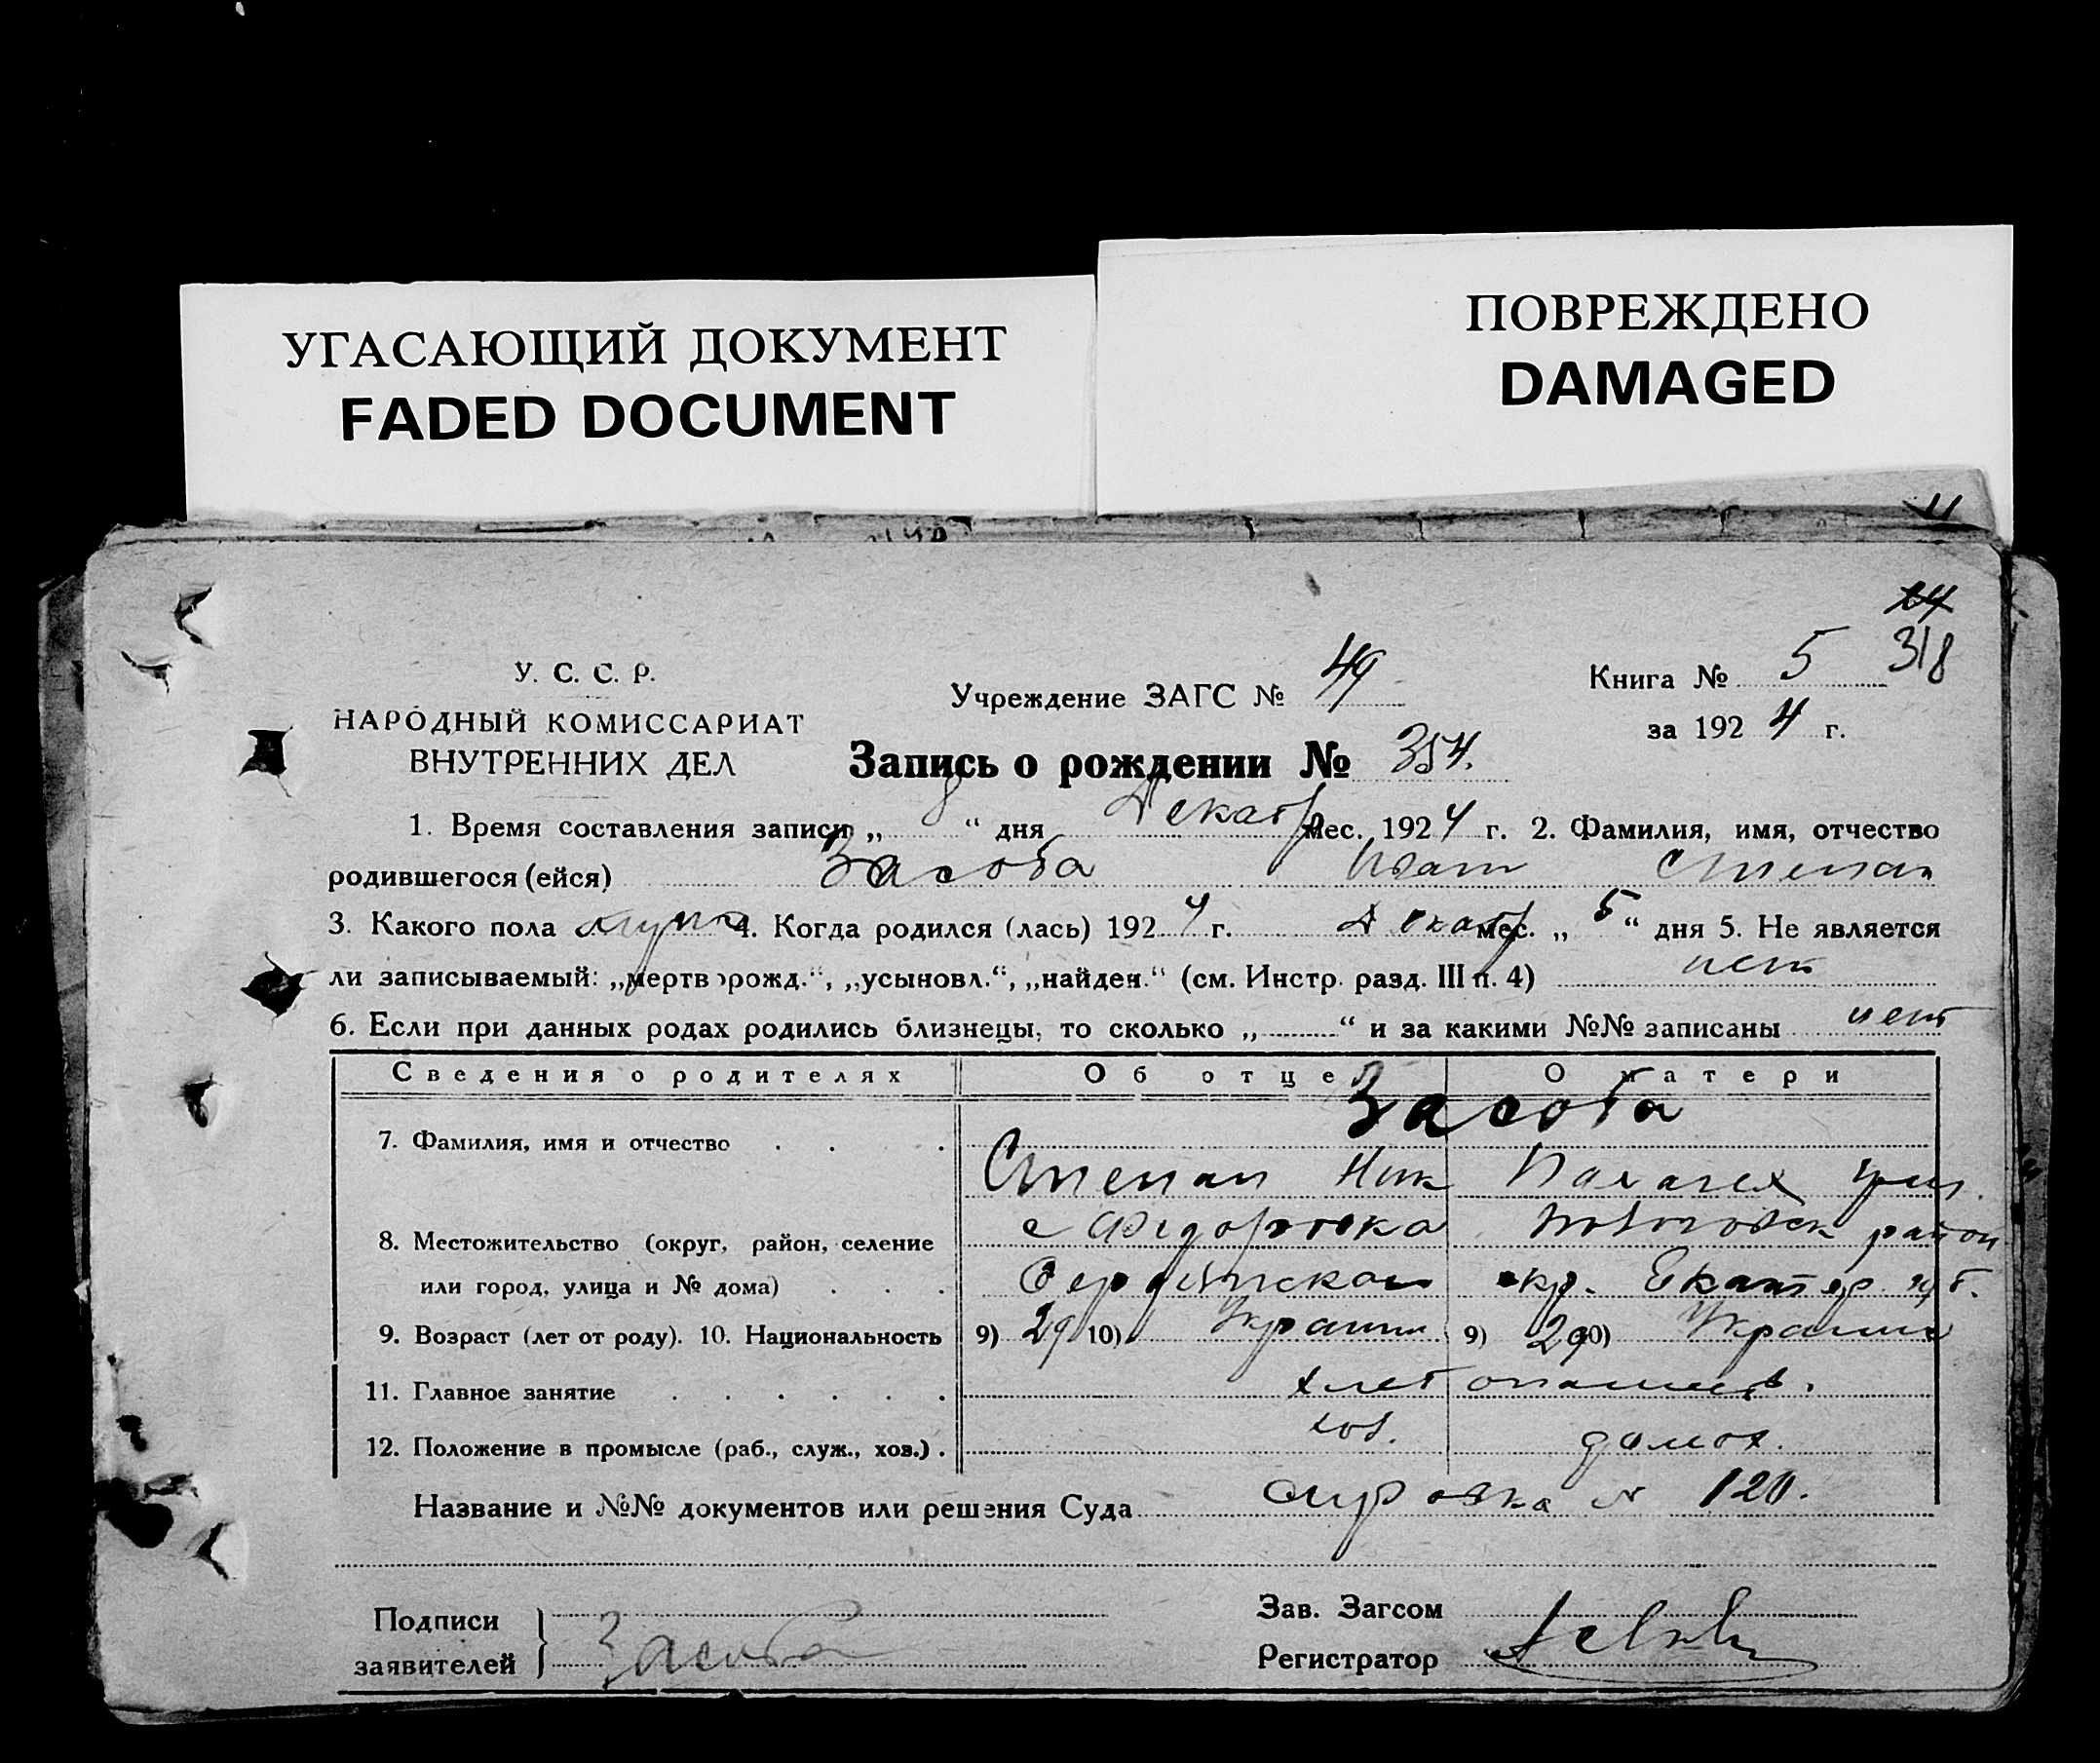 УГАСАЮЩИЙ ДОКУМЕНТ
FADED DOCUMENT
ПОВРЕЖДЕНО
DAMAGED
24
318
У. С. С. Р.
НАРОДНЫЙ КОМИССАРИАТ
ВНУТРЕННИХ ДЕЛ
Учреждение ЗАГС № 49
Книга № 5
за 1924 г.
Запись о рождении № 354.
1. Время составления записи „ 8 “ дня Декабр мес. 1924 г. 2. Фамилия, имя, отчество
родившегося (ейся) Засоба Иван Степан
3. Какого пола муж 4. Когда родился (лась) 1924 г. Декабр мес. „ 5 “ дня 5. Не является
ли записываемый: „мертворожд.“, „усыновл.“, „найден.“ (см. Инстр. разд. III п. 4) нет
6. Если при данных родах родились близнецы, то сколько „ “ и за какими №№ записаны нет
Сведения о родителях Об отце О матери
Засоба
7. Фамилия, имя и отчество
Степан Ник
с Федоровка район
8. Местожительство (округ, район, селение
или город, улица и № дома) Бердянского окр. Екатер. губ.
9. Возраст (лет от роду). 10. Национальность 9) 29 10) Украин 9) 29 10) Украин
11. Главное занятие хлебопашец.
12. Положение в промысле (раб., служ., хоз.) хоз. домох.
Название и №№ документов или решения Суда № 120.
Подписи
заявителей Засоба
Зав. Загсом
Регистратор